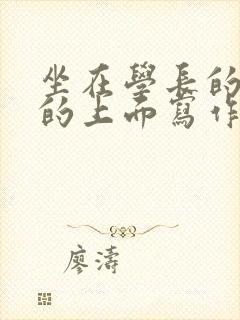 坐在學長的
的上而寫作
廖濤